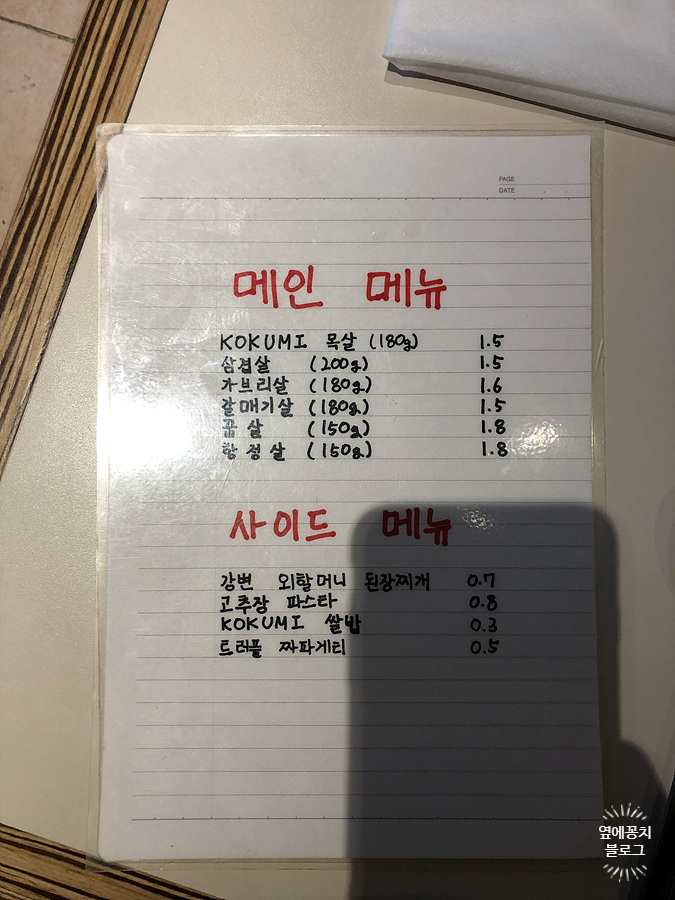 PAGE
DATE
메인 메뉴
KOKUMI 목살 (180g) 1.5
삼겹살 (200g) 1.5
가브리살 (180g) 1.6
갈매기살 (180g) 1.5
꼽살 (150g) 1.8
항정살 (150g) 1.8
사이드 메뉴
강변 외할머니 된장찌개 0.7
고추장 파스타 0.8
KOKUMI 쌀밥 0.3
트러플 짜파게티 0.5
옆에꽁치
블로그